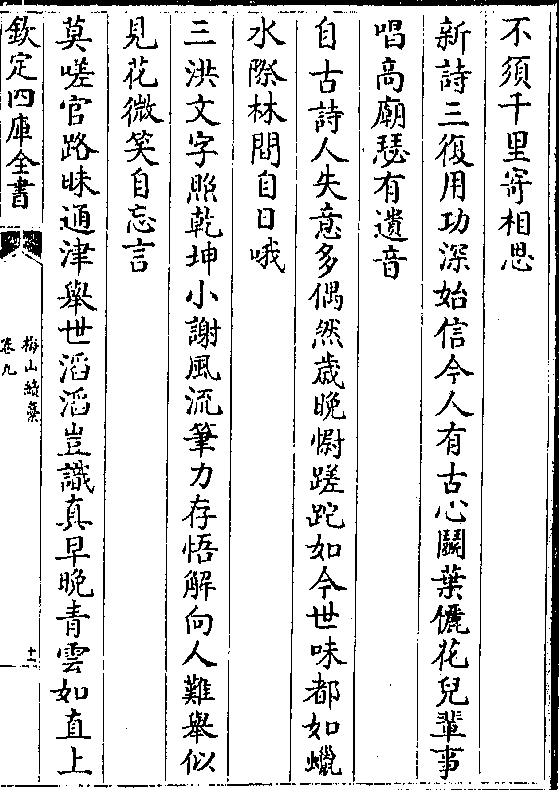 不須千里寄相思
新詩三復用功深始信今人有古心鬭葉儷花兒輩事
唱高廟瑟有遺音
自古詩人失意多偶然歲晩慰蹉跎如今世味都如蠟
水際林間自日哦
三洪文字照乾坤小謝風流筆力存悟解向人難舉似
見花微笑自忘言
莫嗟官路昧通津舉世滔滔豈識真早晩青雲如直上
欽定四庫全書
梅山續藁
卷九
十二